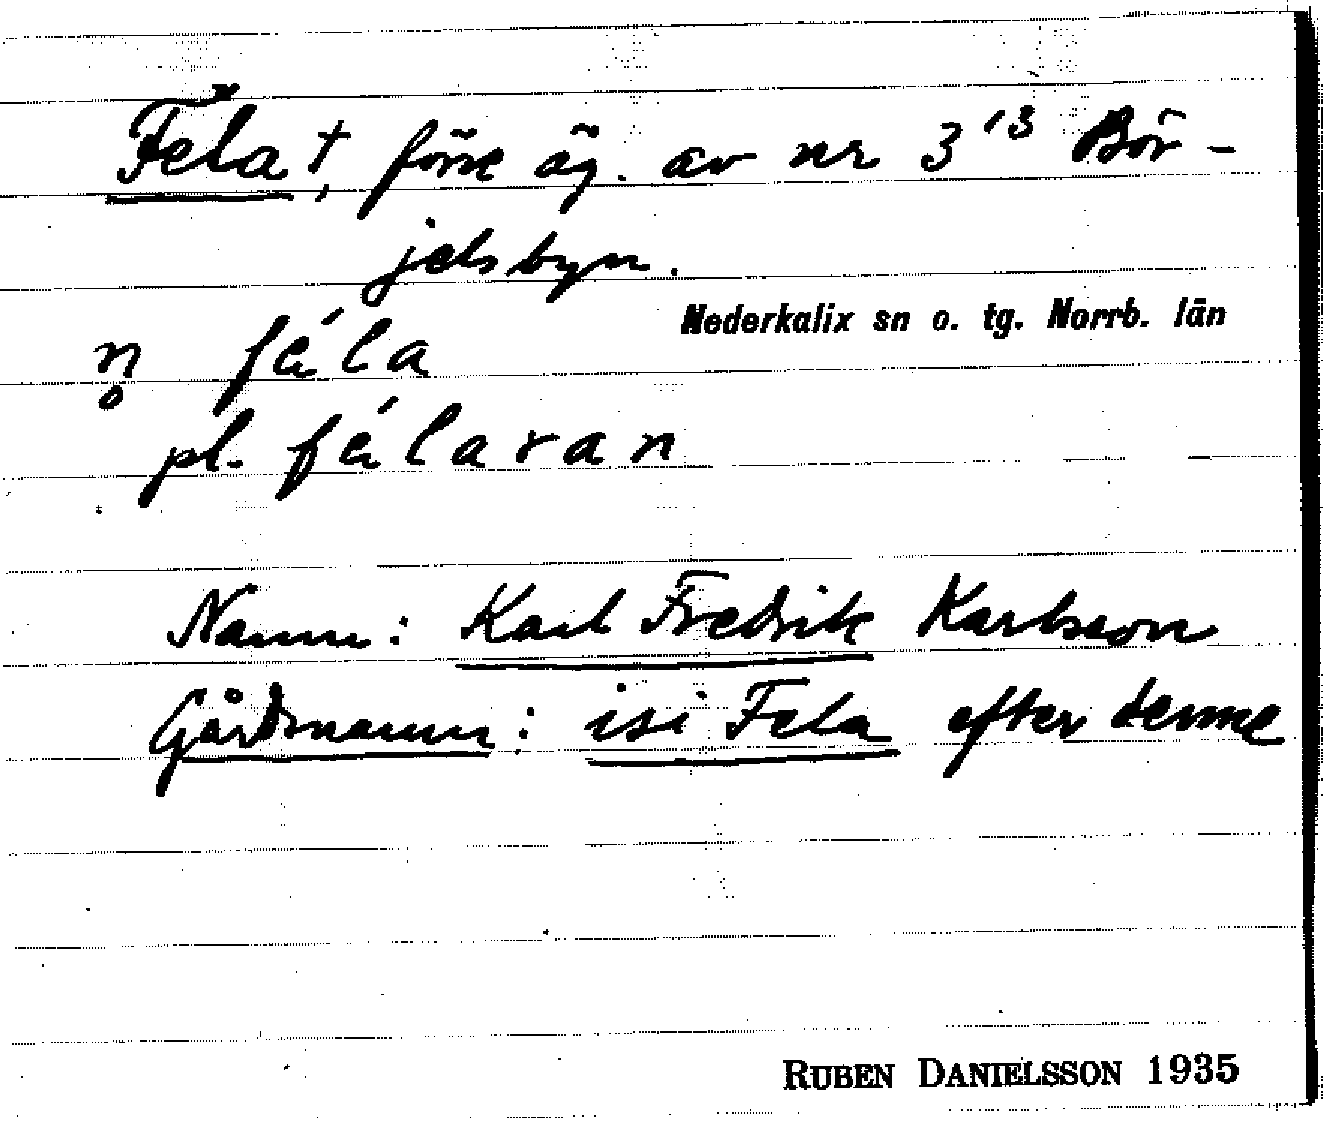 Fela †, förre äg. av nr 3¹³ Bör-
jelsbyn.
Nederkalix sn o. tg. Norrb. län
n̥ féla
pl. félaran
Namn: Karl Fredrik Karlsson
Gårdsnamn: isi Fela efter denne
RUBEN DANIELSSON 1935